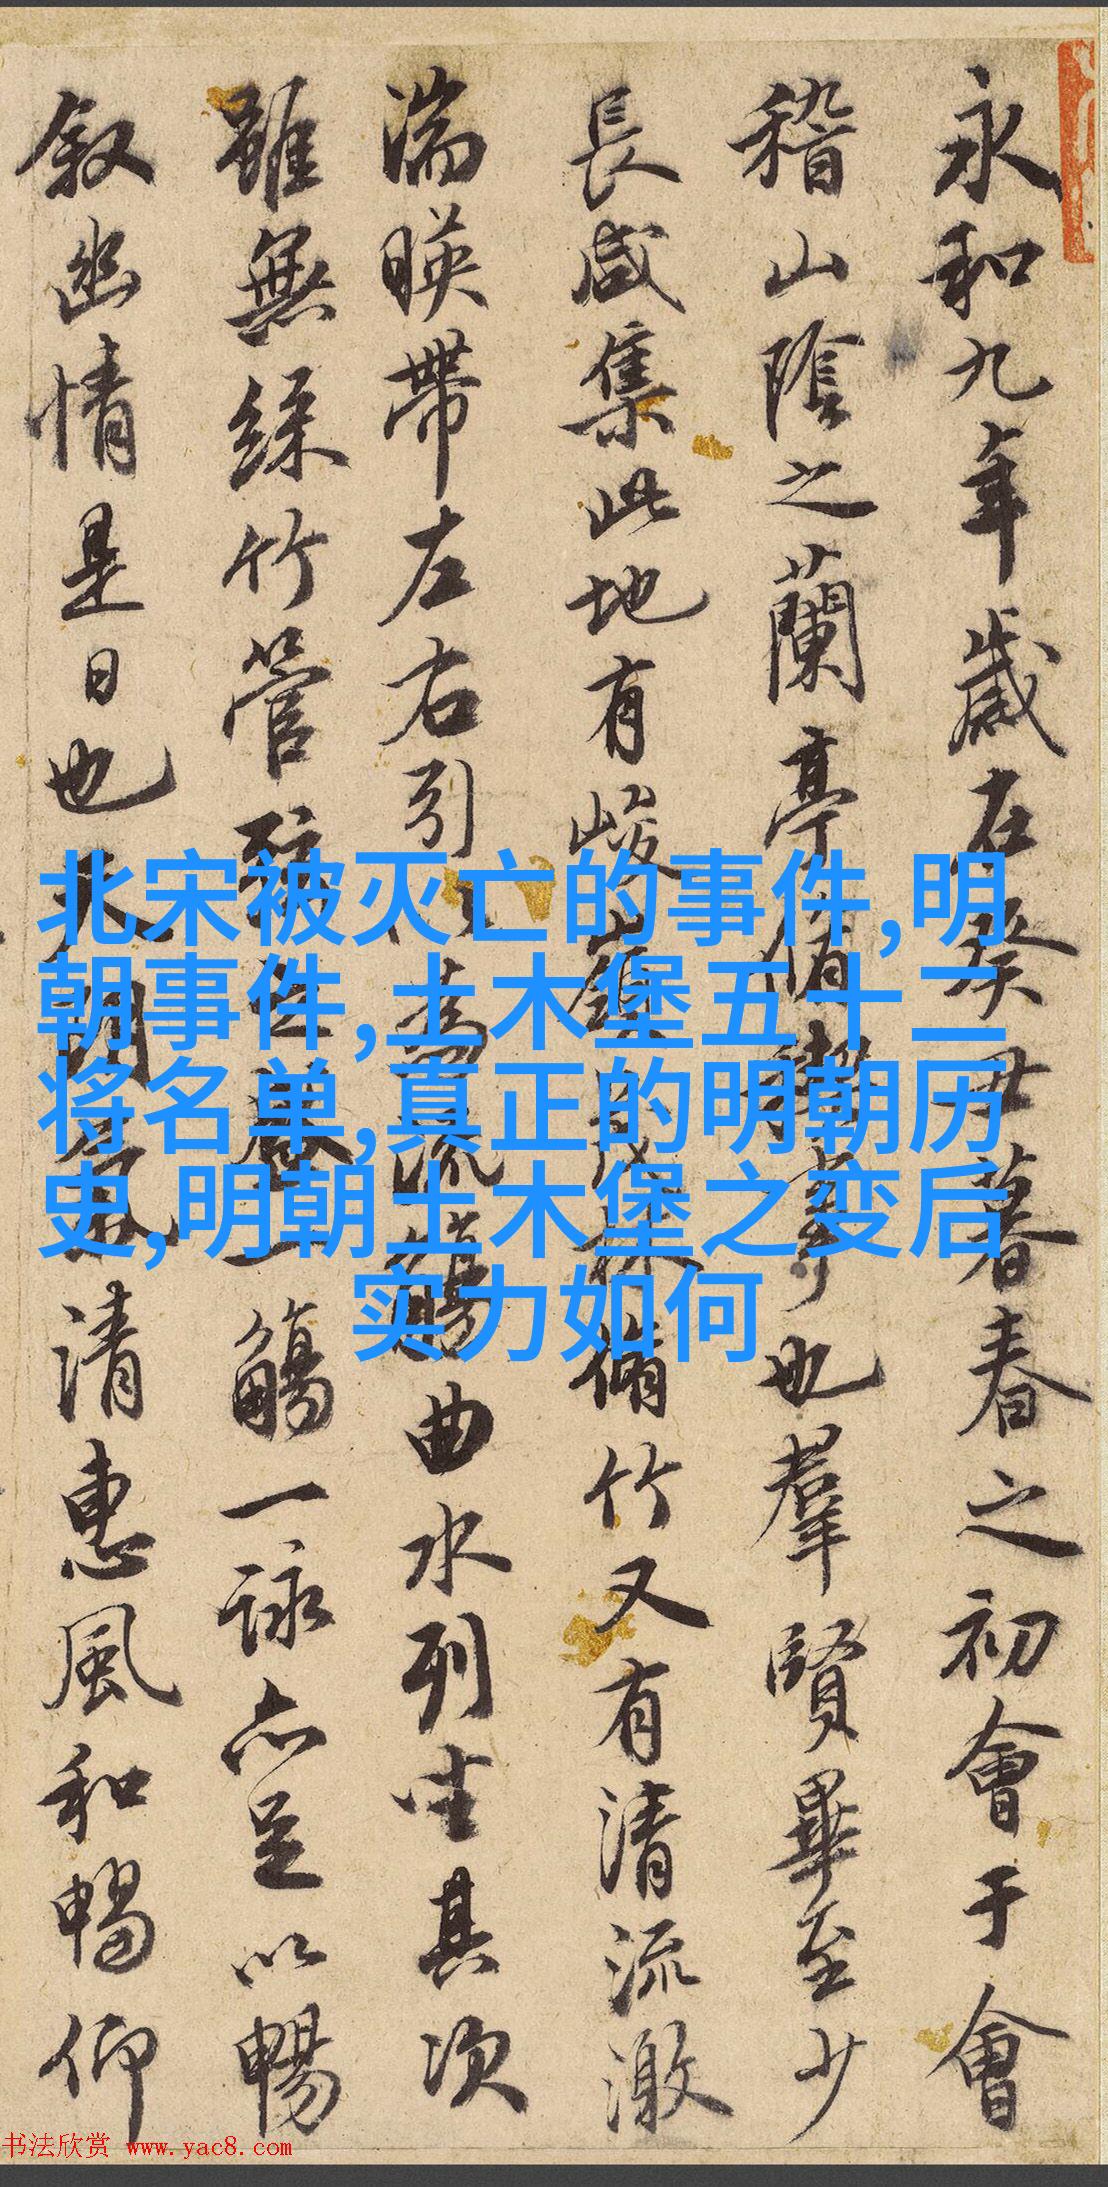 永和九年歲在癸丑暮春之初會于會
稽山陰之蘭亭脩禊事也羣賢畢至少
長咸集此地有峻嶺茂林脩竹又有清流激
湍暎帶左右引以為流觴曲水列坐其次
雖無絲竹管弦之盛一觴一詠亦足以暢
叙幽情是日也天朗氣清惠風和暢仰
北宋被灭亡的事件,明
朝事件,土木堡五十二
将名单,真正的明朝历
史,明朝土木堡之变后
实力如何
书法欣赏 www.yac8.com